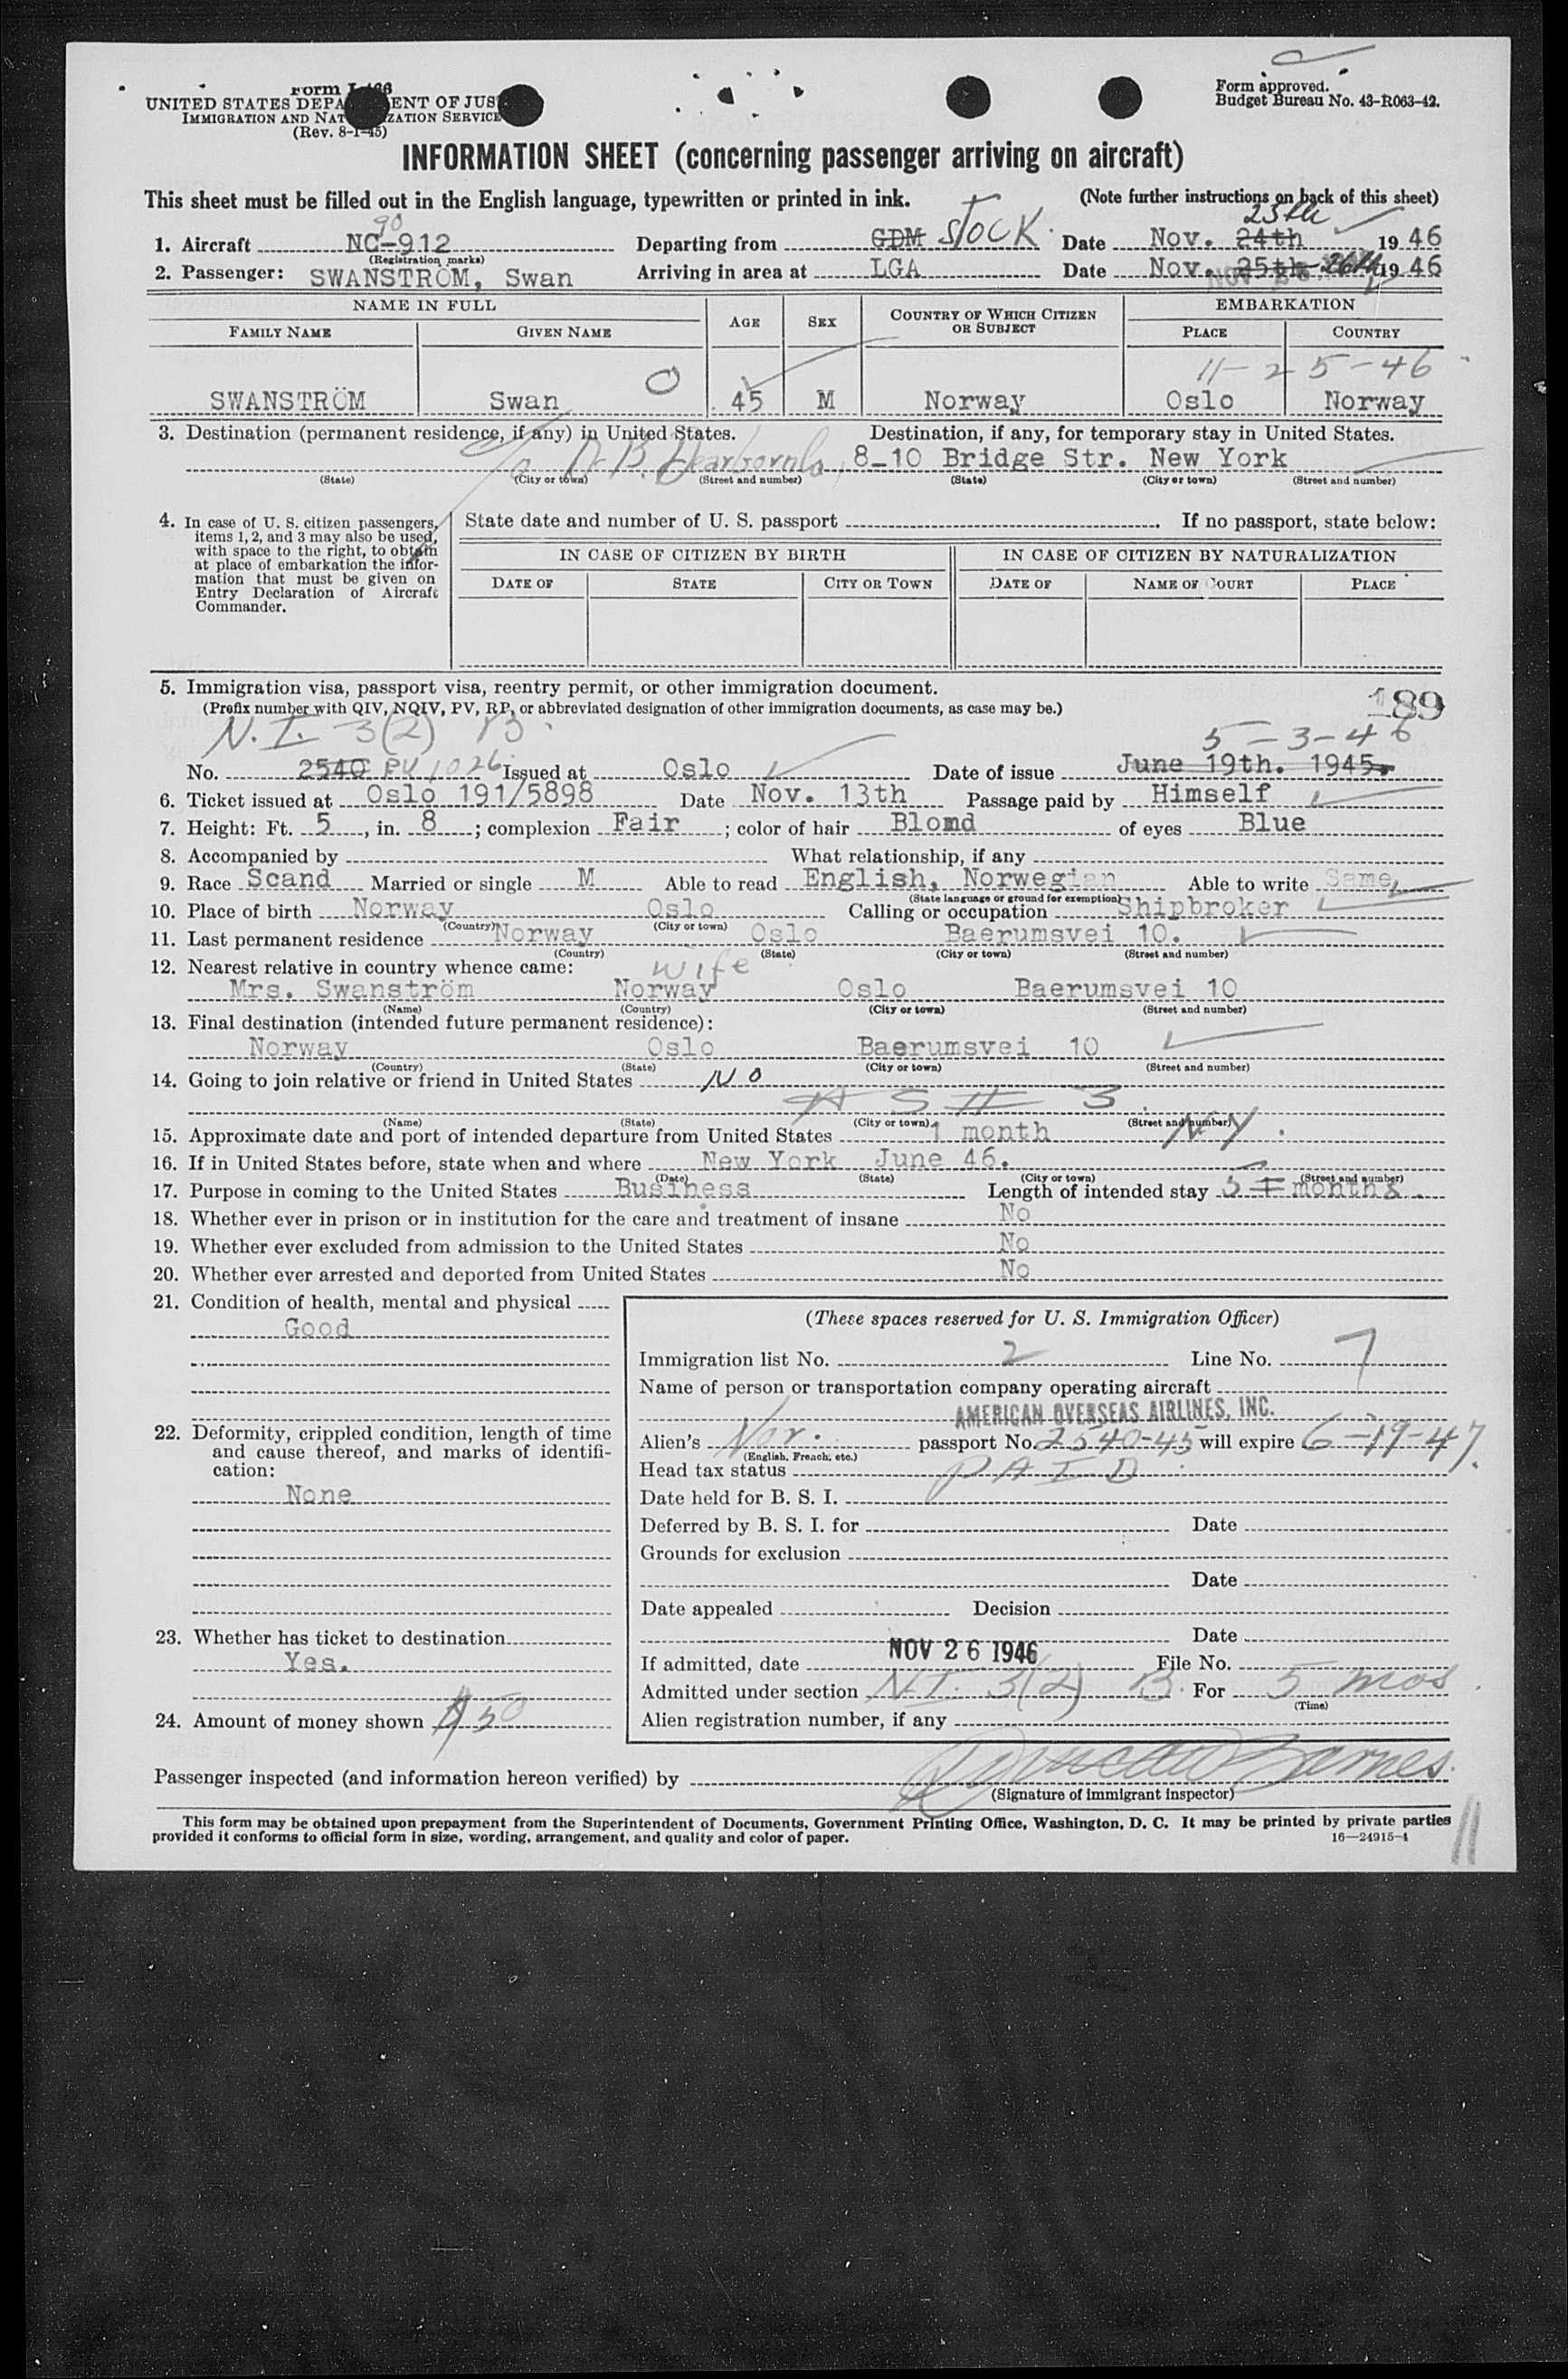 Form I-466
UNITED STATES DEPARTMENT OF JUSTICE
IMMIGRATION AND NATURALIZATION SERVICE
(Rev. 8-1-45)
Form approved.
Budget Bureau No. 43-R063-42.
INFORMATION SHEET (concerning passenger arriving on aircraft)
This sheet must be filled out in the English language, typewritten or printed in ink. (Note further instructions on back of this sheet)
90 25th
1. Aircraft NC-912 Departing from GDM STOCK. Date Nov. 24th 1946
(Registration marks)
2. Passenger: SWANSTRÖM, Swan Arriving in area at LGA Date Nov. 25th 26th 1946
NAME IN FULL AGE SEX COUNTRY OF WHICH CITIZEN OR SUBJECT EMBARKATION
FAMILY NAME GIVEN NAME PLACE COUNTRY
11-25-46
SWANSTRÖM Swan O 45 M Norway Oslo Norway
3. Destination (permanent residence, if any) in United States. Destination, if any, for temporary stay in United States.
8-10 Bridge Str. New York
(State) (City or town) (Street and number) (State) (City or town) (Street and number)
4. In case of U. S. citizen passengers, items 1, 2, and 3 may also be used, with space to the right, to obtain at place of embarkation the information that must be given on Entry Declaration of Aircraft Commander.
State date and number of U. S. passport If no passport, state below:
IN CASE OF CITIZEN BY BIRTH IN CASE OF CITIZEN BY NATURALIZATION
DATE OF STATE CITY OR TOWN DATE OF NAME OF COURT PLACE
5. Immigration visa, passport visa, reentry permit, or other immigration document.
(Prefix number with QIV, NQIV, PV, RP, or abbreviated designation of other immigration documents, as case may be.)
189
N.I. 3(2) B. 5-3-46
No. 2540 PV 1026 Issued at Oslo Date of issue June 19th. 1945.
6. Ticket issued at Oslo 191/5898 Date Nov. 13th Passage paid by Himself
7. Height: Ft. 5, in. 8; complexion Fair; color of hair Blond of eyes Blue
8. Accompanied by What relationship, if any
9. Race Scand Married or single M Able to read English, Norwegian Able to write Same
(State language or ground for exemption)
10. Place of birth Norway Oslo Calling or occupation Shipbroker
(Country) (City or town)
11. Last permanent residence Norway Oslo Baerumsvei 10.
(Country) (State) (City or town) (Street and number)
12. Nearest relative in country whence came: wife
Mrs. Swanström Norway Oslo Baerumsvei 10
(Name) (Country) (City or town) (Street and number)
13. Final destination (intended future permanent residence):
Norway Oslo Baerumsvei 10
(Country) (State) (City or town) (Street and number)
14. Going to join relative or friend in United States NO
(Name) (State) (City or town) (Street and number)
15. Approximate date and port of intended departure from United States 1 month N.Y.
16. If in United States before, state when and where New York June 46.
(Date) (State) (City or town) (Street and number)
17. Purpose in coming to the United States Business Length of intended stay 5 months.
18. Whether ever in prison or in institution for the care and treatment of insane No
19. Whether ever excluded from admission to the United States No
20. Whether ever arrested and deported from United States No
21. Condition of health, mental and physical
Good
22. Deformity, crippled condition, length of time and cause thereof, and marks of identification:
None
23. Whether has ticket to destination
Yes.
24. Amount of money shown $50
(These spaces reserved for U. S. Immigration Officer)
Immigration list No. 2 Line No. 7
Name of person or transportation company operating aircraft
AMERICAN OVERSEAS AIRLINES, INC.
Alien's Nor. passport No. 2540-45 will expire 6-19-47.
(English, French, etc.)
Head tax status PAID
Date held for B. S. I.
Deferred by B. S. I. for Date
Grounds for exclusion
Date
Date appealed Decision
Date
If admitted, date NOV 26 1946 File No.
Admitted under section N.I. 3(2) B. For 5 mos.
(Time)
Alien registration number, if any
Passenger inspected (and information hereon verified) by
(Signature of immigrant inspector)
This form may be obtained upon prepayment from the Superintendent of Documents, Government Printing Office, Washington, D. C. It may be printed by private parties
provided it conforms to official form in size, wording, arrangement, and quality and color of paper. 16—24915-4
11